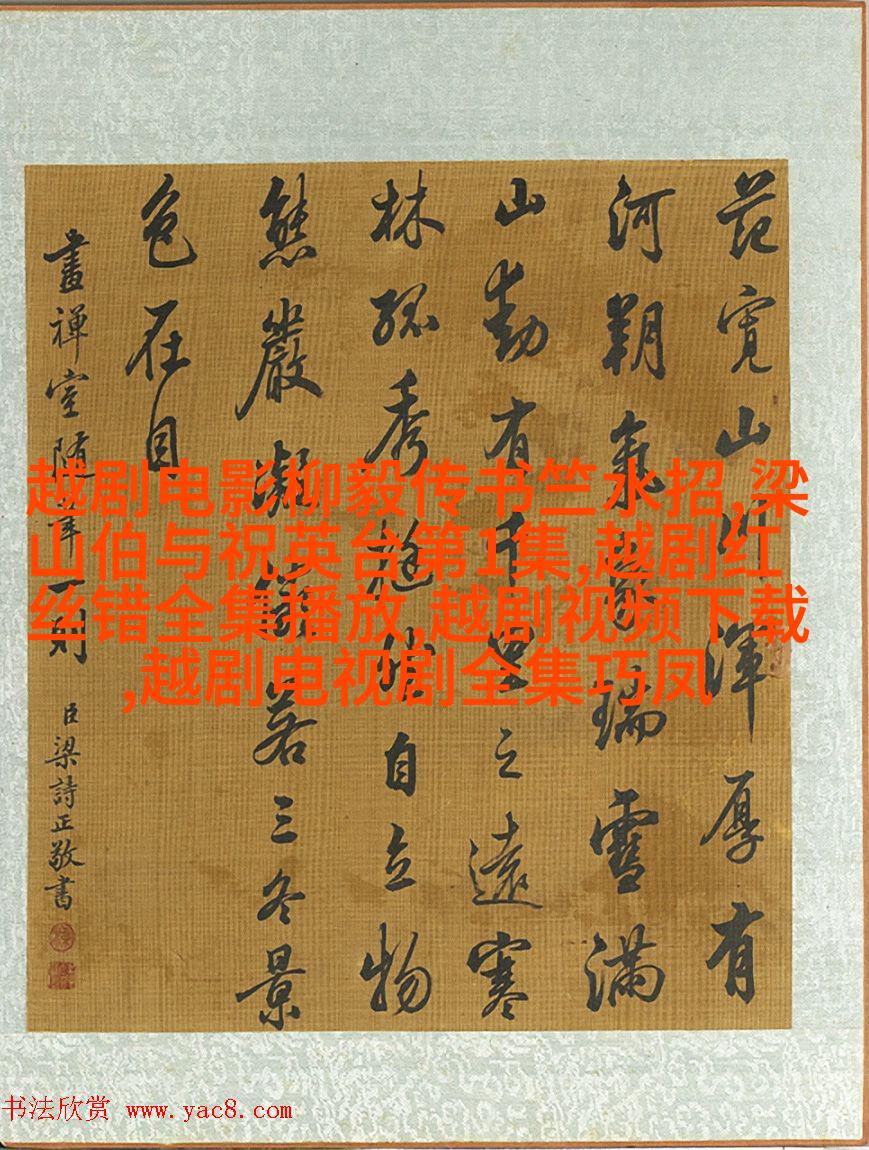 范寬山川渾厚有
河朔氣象瑞雪滿
山動有千里之遠寒
林孤秀挺然自立物
態嚴凝儼若三冬景
色在目
畫禪室隨筆一則
臣梁詩正敬書
越剧电影柳毅传书竺水招,梁
山伯与祝英台第1集,越剧红
丝错全集播放,越剧视频下载
,越剧电视剧全集巧凤
书法欣赏 www.yac8.com